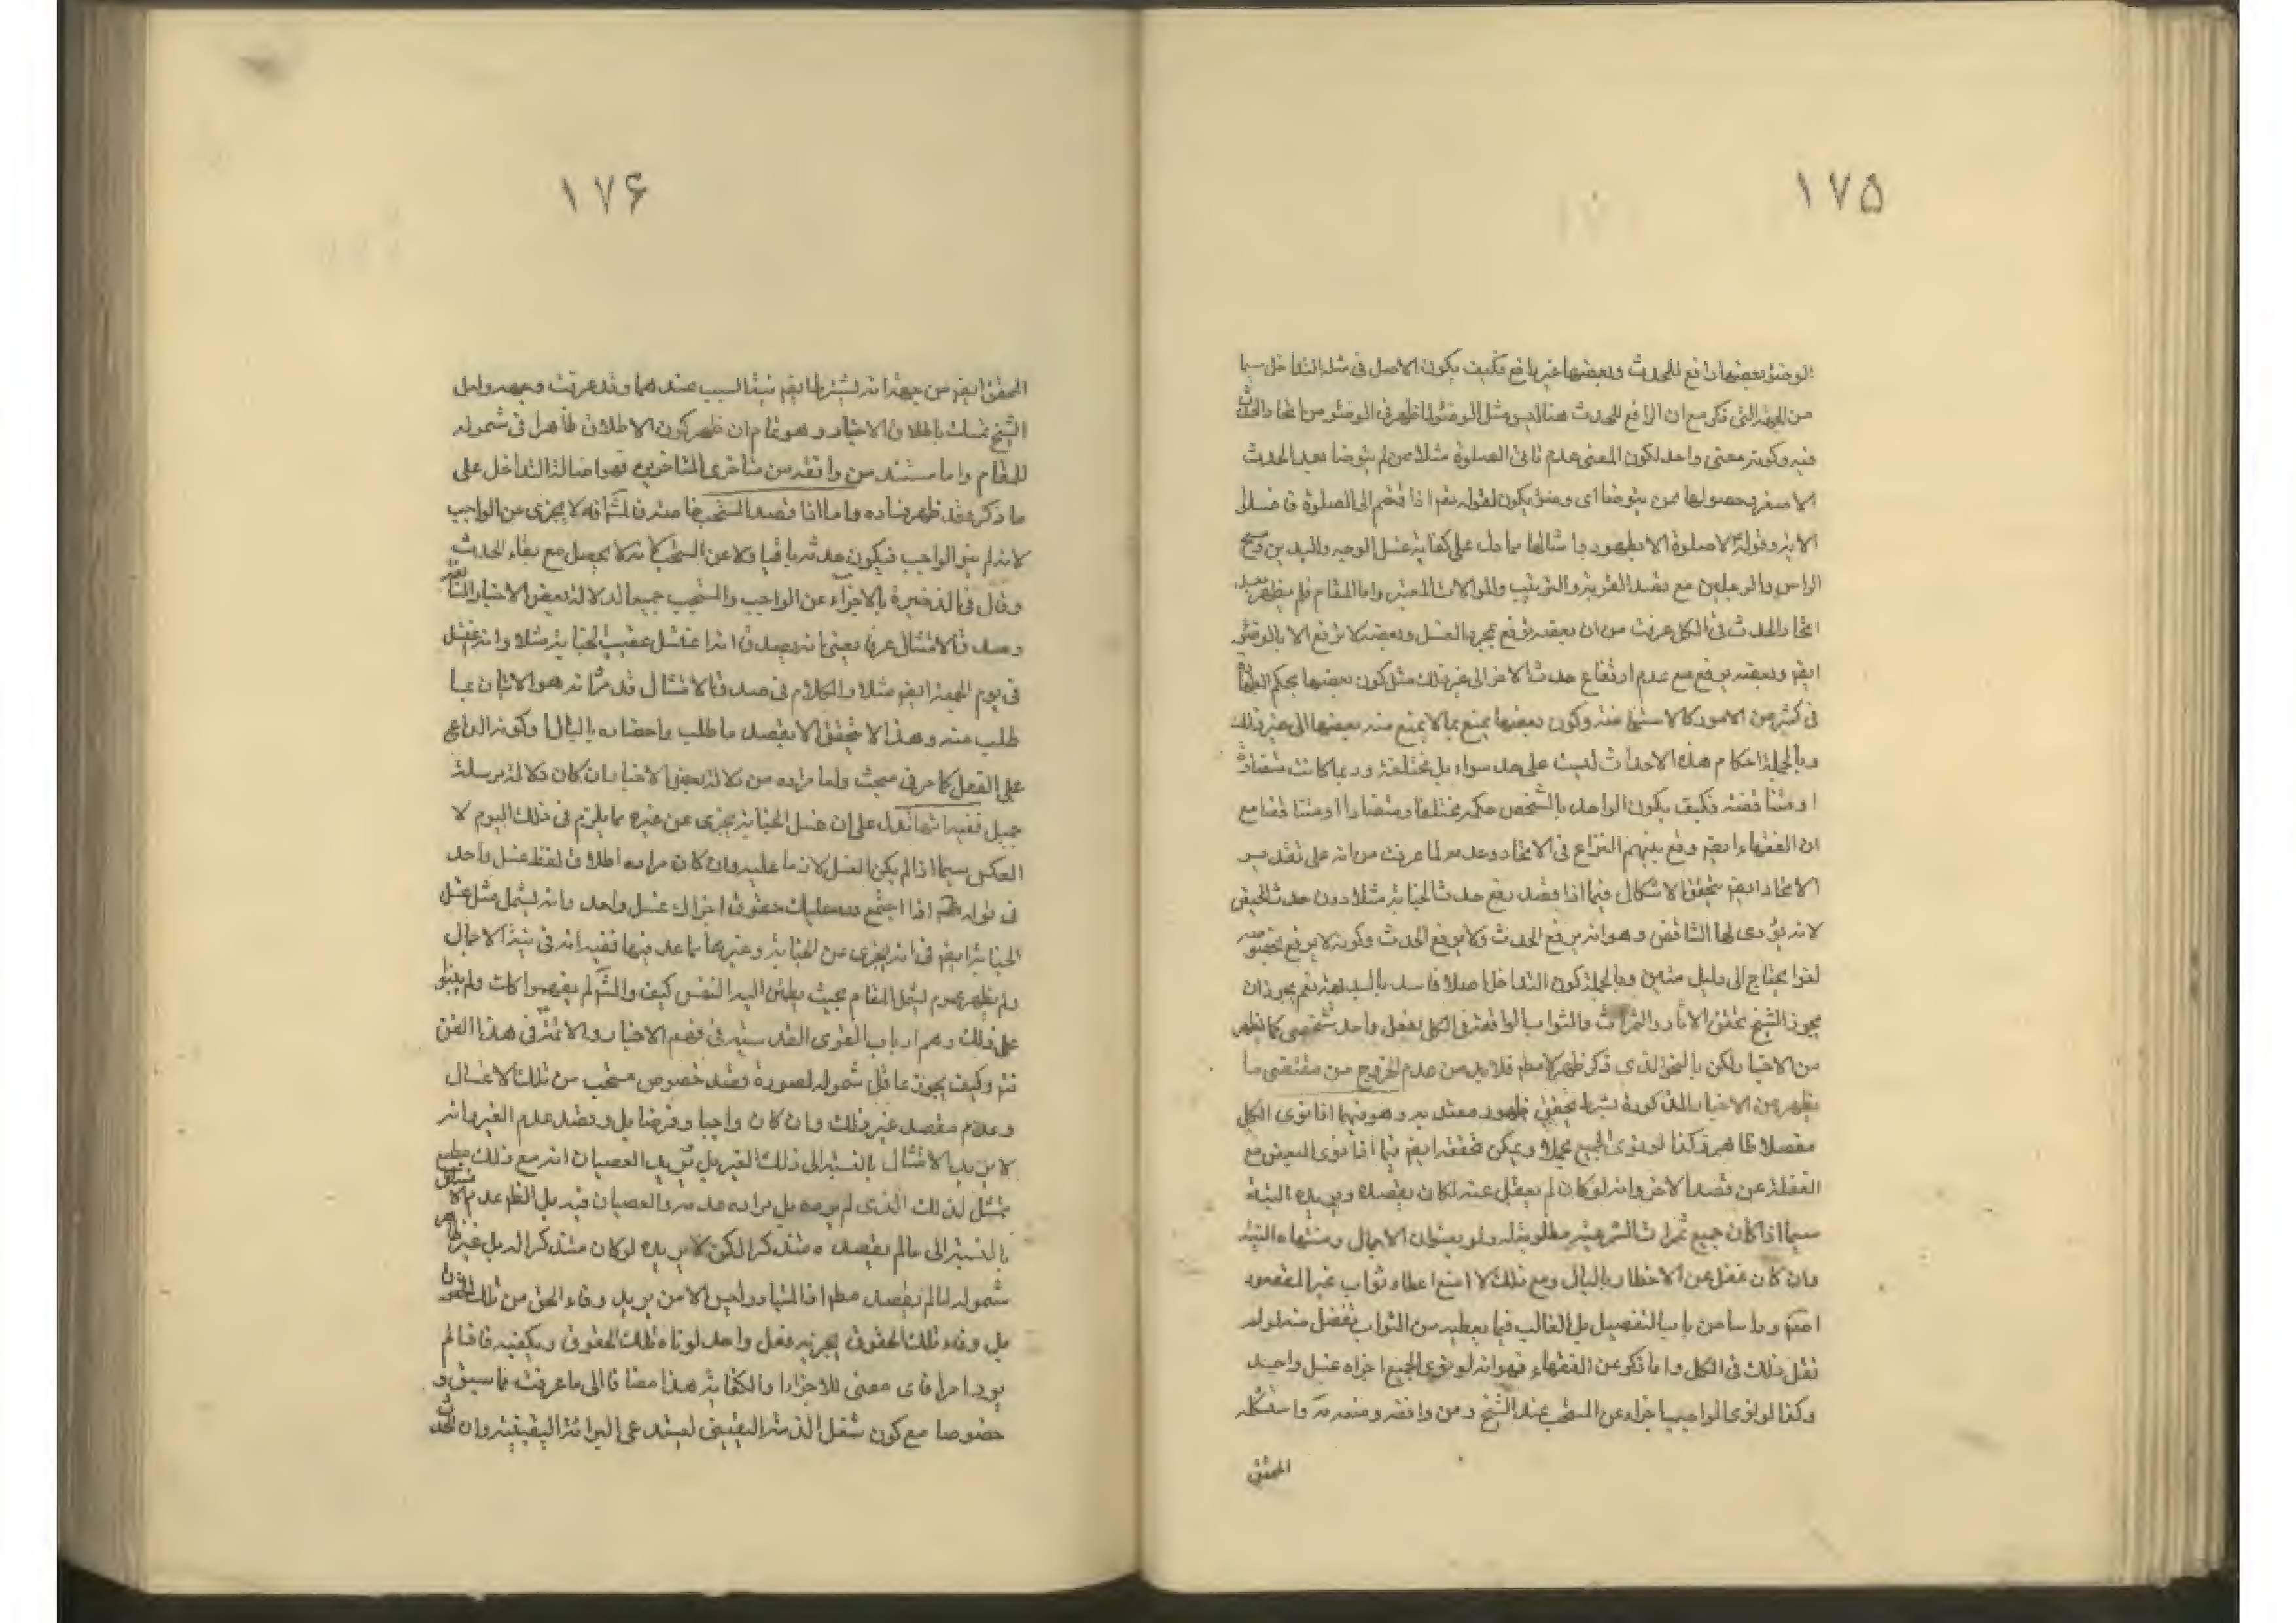 ١٧٥
الوضوء بعضها رافع للحدث وبعضها غير رافع فكيف يكون الاصل في مثله التداخل سيما
من الجهة التي ذكر مع ان الرافع للحدث هنا ليس مثل الوضوء لما ظهر في الوضوء من اتحاد الحدث
فيه وكونه معنى واحد لكون المعنى عدم تاتى الصلوة مثلا ممن لم يتوضا بعد الحدث
الاصغر وحصولها ممن يتوضا اى وضوء يكون لقوله تعم اذا قمتم الى الصلوة فاغسلوا
الاية وقوله لا صلوة الا بطهور وامثالها مما دل على كفاية غسل الوجه واليدين ومسح
الراس والرجلين مع قصد القربة والترتيب والموالات المعتبرة واما المقام فلم يظهر بعد
اتحاد الحدث في الكل عرفت من ان بعضه يرفع بمجرد الغسل وبعضه لا يرفع الا بالوضوء
ايضم وبعضه يرفع مع عدم ارتفاع حدث الاخر الى غير ذلك مثل كون بعضها بحكم الطهارة
في كثير من الامور كالاستحاضة وكون بعضها يمنع بما لا يمنع منه بعضها الى غير ذلك
وبالجملة احكام هذه الاحداث ليست على حد سواء بل مختلفة وربما كانت متضادة
او متناقضة فكيف يكون الواحد بالشخص حكمه مختلفا ومتضادا او متناقضا مع
ان الفقهاء ايضم وقع بينهم النزاع في الاتحاد وعدمه لما عرفت من انه على تقدير
الاتحاد ايضم يتحقق الاشكال فيما اذا قصد رفع حدث الجنابة مثلا دون حدث الحيض
لانه يؤدى لها التناقض وهو انه يرفع الحدث ولا يرفع الحدث وكونه لا يرفع
لغوا يحتاج الى دليل متين وبالجملة كون التداخل اصلا فاسد بالبديهة نعم يجوز ان
يجوز الشيخ تحقق الاثار والثمرات والثواب الواقعة في الكل بفعل واحد شخصى كما يظهر
من الاخبار لكن بالنحو الذى ذكر ظهر لا مطم فلابد من عدم الخروج من مقتضى ما
يظهر من الاخبار المذكورة بشرط تحقق ظهور معتد به وهو فيما اذا نوى الكل
مفصلا ظاهر وكذا لو نوى الجميع مجملا ويمكن تحققه ايضم فيما اذا نوى البعض مع
الغفلة عن قصد الاخر وانه لو كان لم يغفل عنه لكان يقصده ويريده البتة
سيما اذا كان جميع ثمرات الشرعية مطلوبة له ولو بعنوان الاجمال ومنتهاه النية
وان كان غفل عن الاخطار بالبال ومع ذلك لا امنع اعطاء ثواب غير المقصود
ايضم واسا من باب التفضيل بل الغالب فيما يعطيه من الثواب تفضل منه لوله
نقل ذلك في الكل واما ذكر عن الفقهاء فهو انه لو نوى الجميع اجزاه غسل واحد
وكذا لو نوى الواجب اجزاء عن المستحب عند الشيخ ومن وافقه ومنعه مه واستشكله
المحقق
١٧۶
المحقق ايضم من جهة انه يشترط ايضم نية السبب عندهما وقد عرفت وجهه ولعل
الشيخ تمسك باطلاق الاخبار وهو تمام ان ظهر كون الاطلاق ظاهرا في شموله
للمقام واما مستند من وافقه من متاخرى المتاخرين فهو اصالة التداخل على
ما ذكر وقد ظهر فساده واما اذا قصد المستحب خاصة فالش انه لا يجزى عن الواجب
لانه لم ينو الواجب فيكون حدثه باقيا ولا عن المستحب لانه لا يحصل مع بقاء الحدث
وقال في الذخيرة بالاجزاء عن الواجب والمستحب جميعا لدلالة بعض الاخبار السابقة
وصدق الامتثال عرفا بمعنى انه يصدق انه اغتسل عقيب الجنابة مثلا وانه اغتسل
في يوم الجمعة ايضم مثلا والكلام في صدق الامتثال قد مر انه هو الاتيان بما
طلب منه وهذا لا يتحقق الا بقصد ما طلب واحضاره بالبال او كونه الداعى
على الفعل كما مر في مبحث واما مراده من دلالة بعض الاخبار ان كان دلالة مرسلة
جميل ففيه انها تدل على ان غسل الجنابة يجزى عن غيره مما يلزم في ذلك اليوم لا
العكس سيما اذا لم يكن الغسل لازما عليه وان كان مراده اطلاق لفظ غسل واحد
في قوله اذا اجتمع لله عليك حقوق اجزاك غسل واحد وانه يشمل مثل غسل
الجنابة ايضم في انه يجزى عن الجنابة وغيرها مما عد فيها ففيه انه في نية الاجمال
ولم يظهر عموم يشمل المقام بحيث يطمئن اليه النفس كيف والش لم يفهموا كك ولم يبنوا
على ذلك وهم ارباب القوى القدسية في فهم الاخبار والائمة في هذا الفن
نعم وكيف يجوز عاقل شموله لصورة قصد خصوص مستحب من تلك الاغسال
وعدم قصد غير ذلك وان كان واجبا وفرضا بل وقصد عدم الغير وانه
لا يريد الامتثال بالنسبة الى ذلك الغير بل يريد العصيان انه مع ذلك مطيع
ممتثل لذلك الذى لم يرده بل مراده عدمه والعصيان فيه بل الظم عدم شموله
بالنسبة الى ما لم يقصده متذكرا لكن لا يريده لو كان متذكرا له بل غير ظاهر
شموله لما لم يقصد مطم اذ المتبادر ليس الا من يريد وفاء الحق من تلك الحقوق
بل وفاء تلك الحقوق يجزيه فعل واحد لوفاء تلك الحقوق ويكفيه فاذا لم
يرد امرا فاى معنى للاجزاء والكفاية هذا مضافا الى ما عرفت مما سبق و
خصوصا مع كون شغل الذمة اليقينى يستدعى البرائة اليقينية وان الحدث